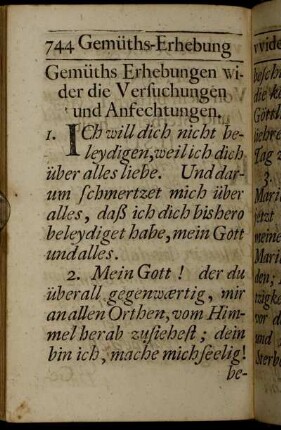 744 Gemüths-Erhebung
Gemüths Erhebungen wi-
der die Versuchungen
und Anfechtungen.
1. ICh will dich nicht be-
leydigen, weil ich dich
über alles liebe. Und dar-
um schmertzet mich über
alles, daß ich dich bishero
beleydiget habe, mein Gott
und alles.
2. Mein Gott! der du
überall gegenwærtig, mir
an allen Orthen, vom Him-
mel herab zusiehest; dein
bin ich, mache mich seelig!
be-